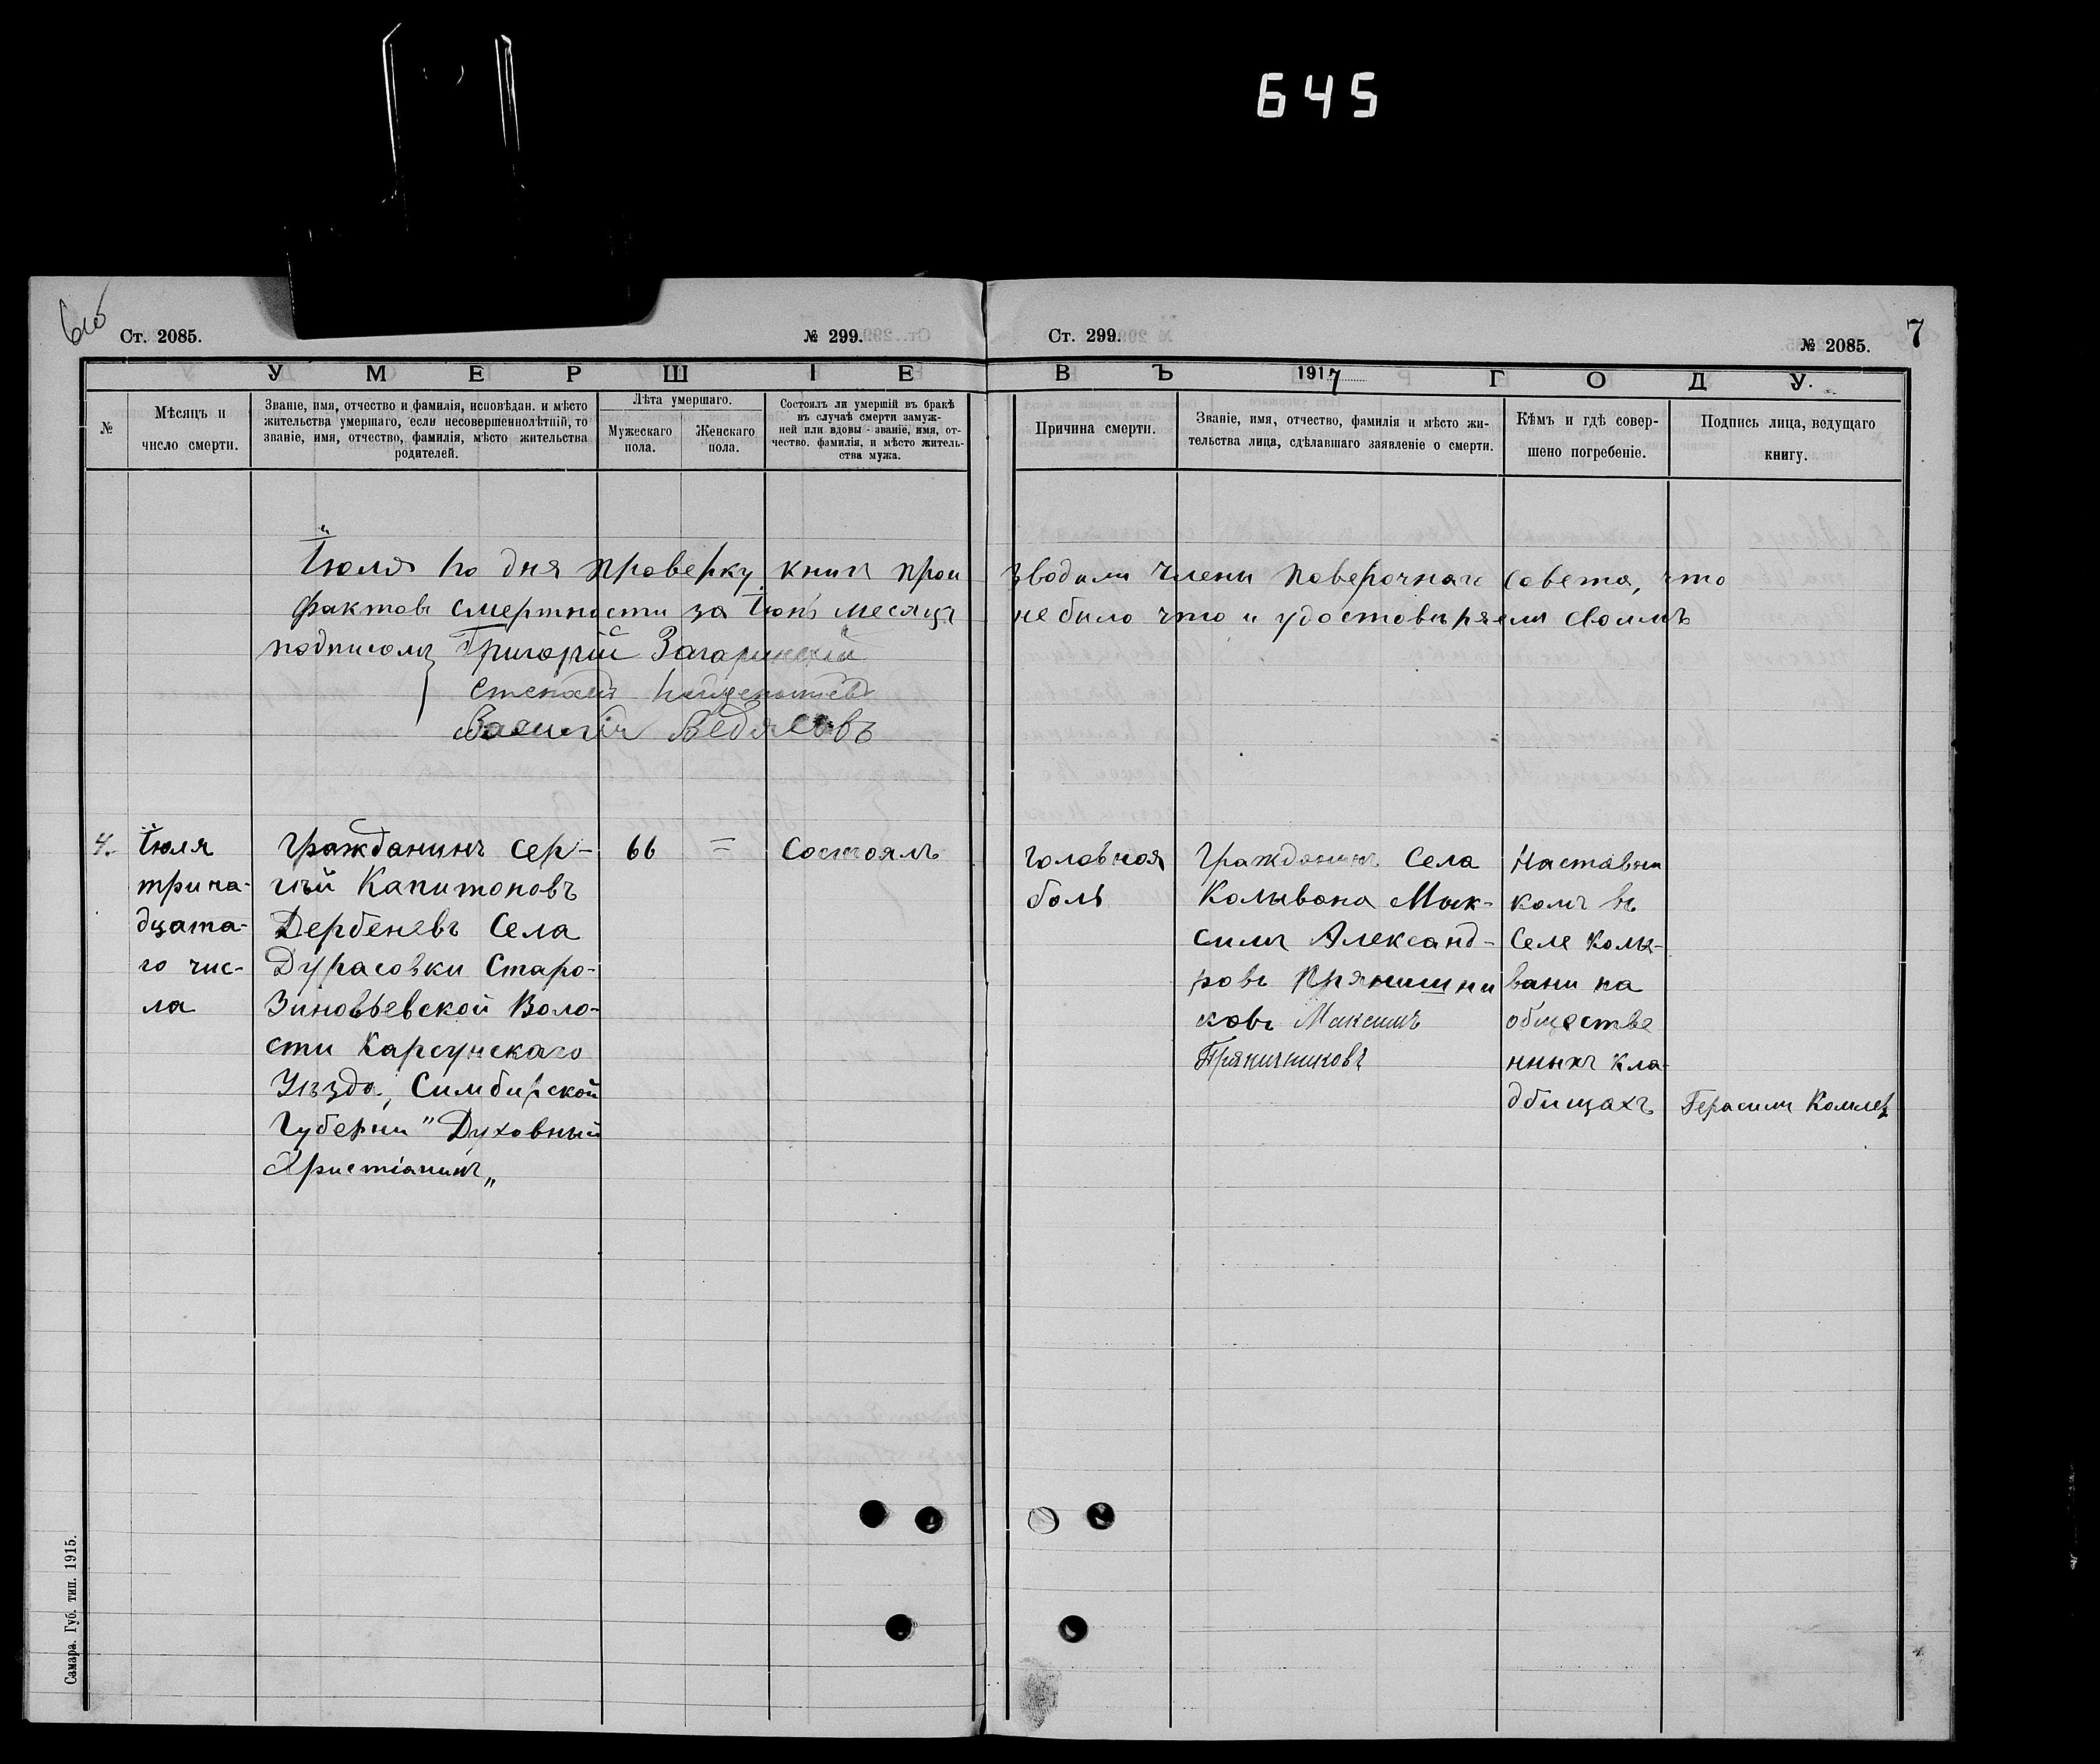 645
6об
Ст. 2085.
№ 299.
Ст. 299.
№ 2085.
7
УМЕРШІЕ
ВЪ 1917 ГОДУ.
№
Мѣсяцъ и
число смерти.
Званіе, имя, отчество и фамилія, исповѣдан. и мѣсто
жительства умершаго, если несовершеннолѣтній, то
званіе, имя, отчество, фамилія, мѣсто жительства
родителей.
Лѣта умершаго.
Мужескаго
пола.
Женскаго
пола.
Состоялъ ли умершій въ бракѣ
въ случаѣ смерти замуж-
ней или вдовы - званіе, имя, от-
чество. фамилія, и мѣсто житель-
ства мужа.
Причина смерти.
Званіе, имя, отчество, фамилія и мѣсто жи-
тельства лица, сдѣлавшаго заявленіе о смерти.
Кѣмъ и гдѣ совер-
шено погребеніе.
Подпись лица, ведущаго
книгу.
Іюля дня проверку книгъ прои зводили Члены поверочнаго Совета, что
фактовъ смертности за Іюнь месяцъ не было что и удостовѣряемъ своимъ
подписомъ Григорій
Степанъ
Василій Ведясовъ
4.
Іюля
трина-
дцата-
го чис-
ла
Гражданинъ Сер-
гѣй Капитоновъ
Дербеневъ Села
Дурасовки Старо-
Зиновьевской Воло-
сти Карсунскаго
Уѣзда, Симбирской
Губернии "Духовный
Христіанинъ„
66
=
Состоялъ
головная
боль
Гражданинъ Села
Колывана Мак-
симъ Александ-
ровъ Прянишни
ковъ Максимъ
Пряничниковъ
Наставни
комъ въ
Селе Колы-
вани на
обществе
нныхъ кла-
дбищахъ
Герасимъ
Самара. Губ. тип. 1915.